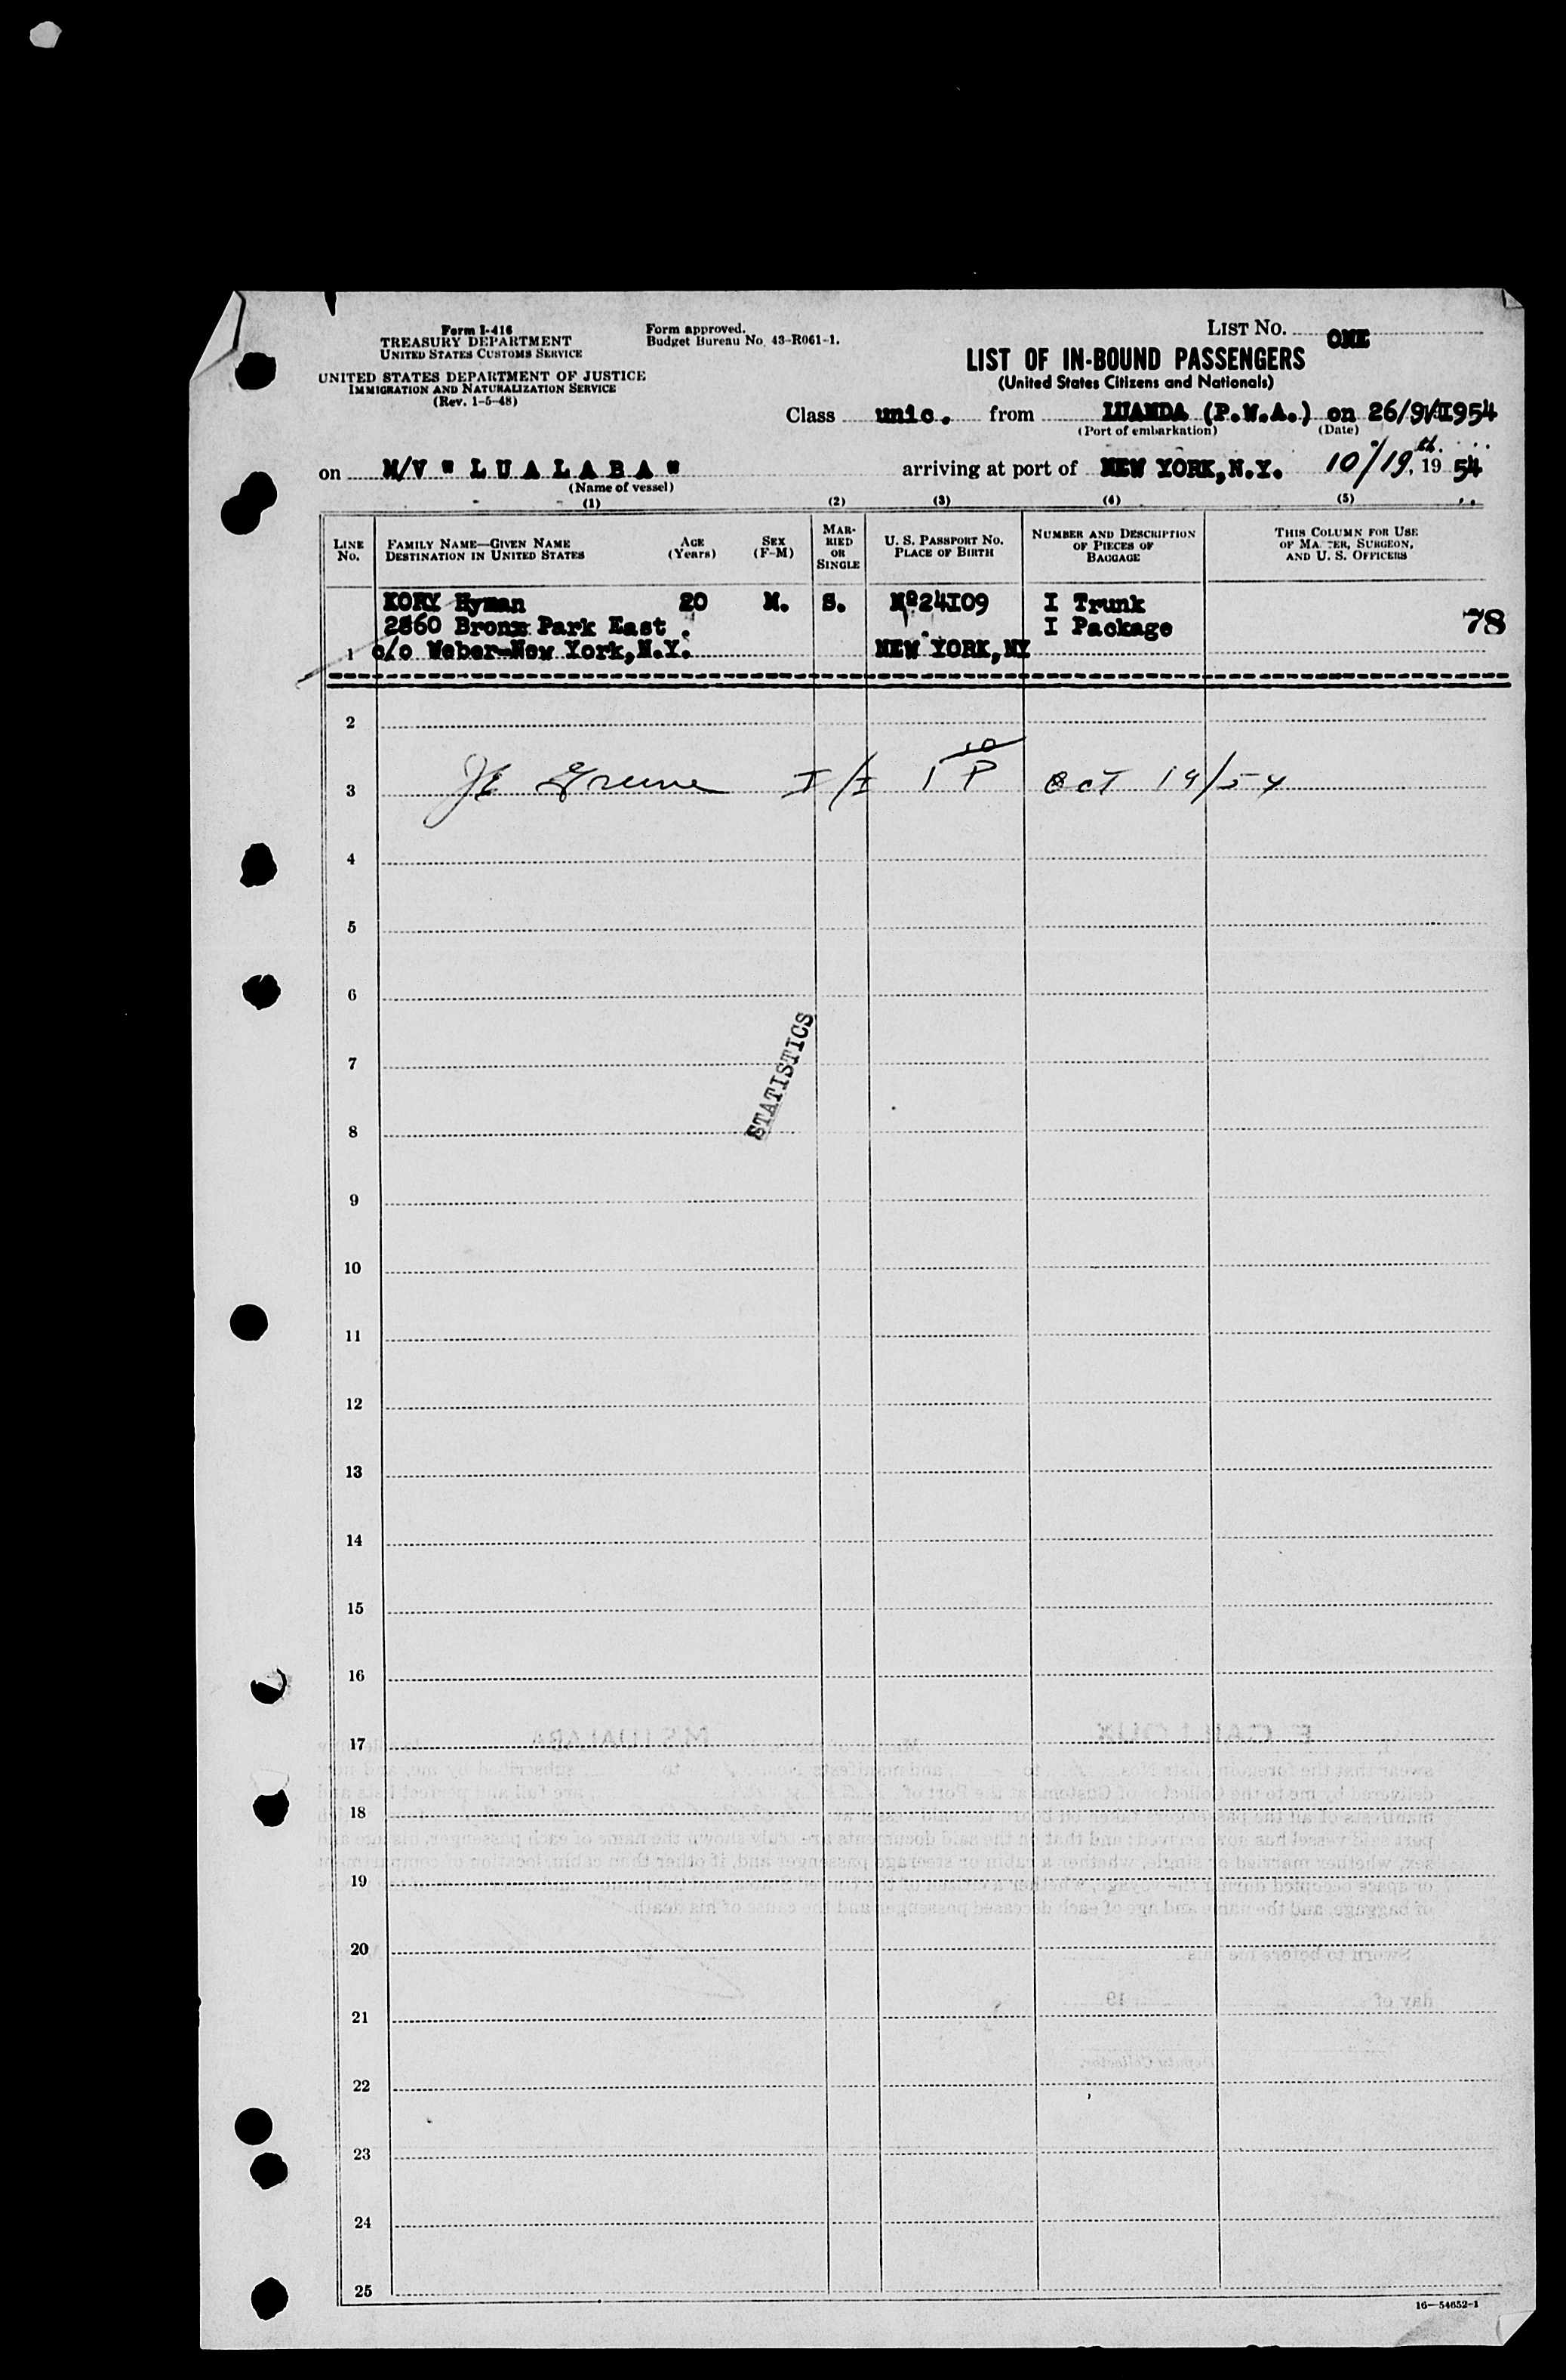 Form I-416
TREASURY DEPARTMENT
UNITED STATES CUSTOMS SERVICE
Form approved.
Budget Bureau No. 43-R061-1.
LIST NO. ONE
UNITED STATES DEPARTMENT OF JUSTICE
IMMIGRATION AND NATURALIZATION SERVICE
(Rev. 1-5-48)
LIST OF IN-BOUND PASSENGERS
(United States Citizens and Nationals)
Class unic. from LUANDA (P.W.A.) on 26/9/I954
(Port of embarkation) (Date)
on M/V " L U A L A B A " arriving at port of NEW YORK,N.Y. 10/19th, 19 54
(Name of vessel)
(1) (2) (3) (4) (5)
LINE No. FAMILY NAME—GIVEN NAME DESTINATION IN UNITED STATES AGE (Years) SEX (F-M) MARRIED OR SINGLE U. S. PASSPORT NO. PLACE OF BIRTH NUMBER AND DESCRIPTION OF PIECES OF BAGGAGE THIS COLUMN FOR USE OF MASTER, SURGEON, AND U. S. OFFICERS
KORY Hyman 20 M. S. Nº24I09 I Trunk
2860 Bronx Park East. I Package 78
1 c/o Weber-New York,N.Y. NEW YORK,NY
2
3 Greene I/I 1 P Oct 19/54
4
5
6
7
STATISTICS
8
9
10
11
12
13
14
15
16
17
18
19
20
21
22
23
24
25
16—54652-1